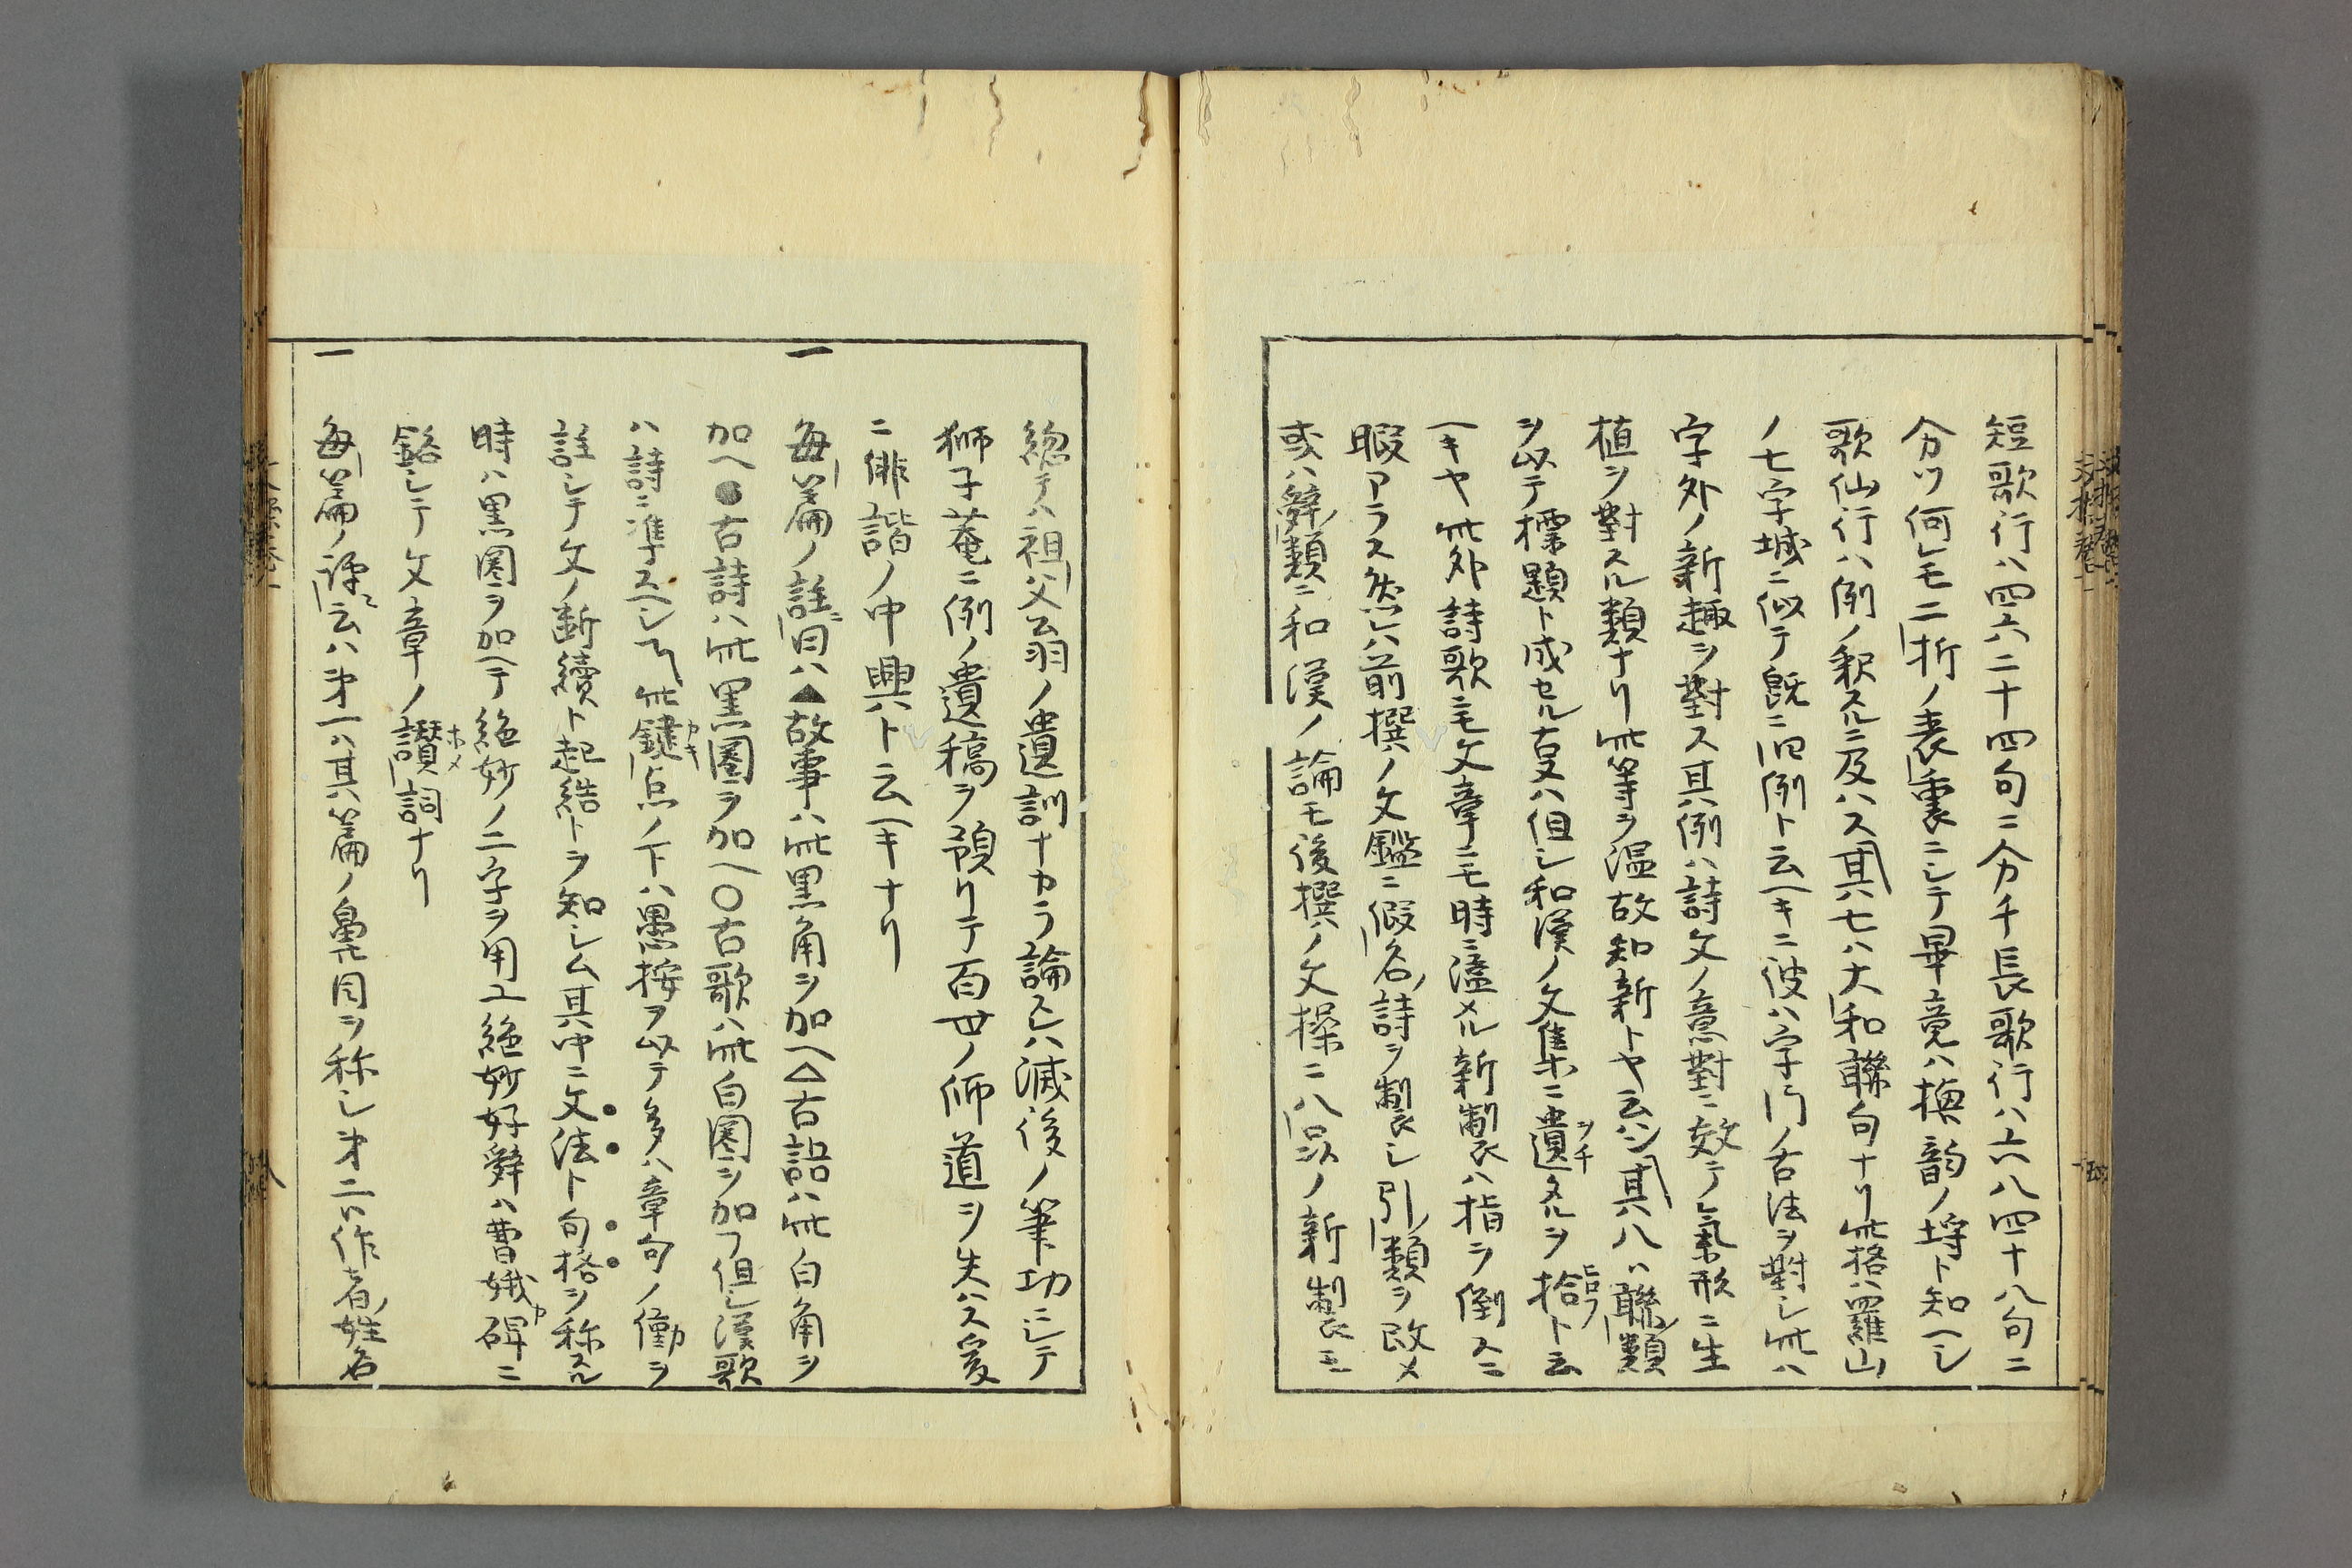 短歌行ハ四六二十四句ニ分チ長歌行ハ六八四十八句ニ
分ツ何レモ二折ノ表裏ニシテ畢竟ハ換韵ノ埒ト知ヘシ
歌仙行ハ例ノ釈スルニ及ハス其七ハ大和聯句ナリ此格ハ羅山
ノ七字城ニ似テ既ニ旧例ト云ヘキニ彼ハ字行ノ古法ヲ對シ此ハ
字外ノ新趣ヲ對ス其例ハ詩文ノ意對ニ效テ氣形ニ生
植ヲ對スル類ナリ此等ヲ温故知新トヤ云ハン其八ハ聯類
ヲ以テ標題ト成セル古文ハ但シ和漢ノ文集ニ遺タルヲ拾ト云
ヘキヤ此外詩歌ニモ文章ニモ時ニ濫メル新製ハ指ヲ倒スニ
暇アラス然レハ前撰ノ文鑑ニ假名詩ヲ製シ引類ヲ改メ
或ハ辞類ニ和漢ノ論モ後撰ノ文操ニ八品ノ新製モ
總テハ祖父翁ノ遺訓ナカラ論スレハ滅後ノ筆功ニシテ
獅子菴ニ例ノ遺稿ヲ預リテ百世ノ師道ヲ失ハス爰
ニ俳諧ノ中興ハト云ヘキナリ
一 毎篇ノ註目ハ▲故事ハ此黒角ヲ加ヘ△古語ハ此白角ヲ
加ヘ●古詩ハ此黒圏ヲ加ヘ○古歌ハ此白圏ヲ加フ但シ漢歌
ハ詩ニ準スヘシ此鍵点ノ下ハ愚按ヲ以テ多ハ章句ノ働ヲ
註シテ文ノ断續ト起結トヲ知シム其中ニ文法ト句格ヲ称スル
時ハ黒圏ヲ加ヘテ絶妙ノ二字ヲ用ユ絶妙好辞ハ曹娥碑ニ
銘シテ文章ノ讃詞ナリ
一 毎篇ノ譚ニ云ハ第一ハ其篇ノ鼻目ヲ称シ第二ハ作者姓名